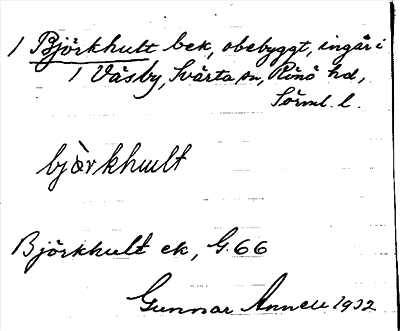 1 Björkhult bek, obebyggt, ingår i
1 Väsby, Svärta sn, Rönö hd,
Sörml. l.
bjö̀rkhult
Björkhult ek, G. 66
Gunnar Annell 1932